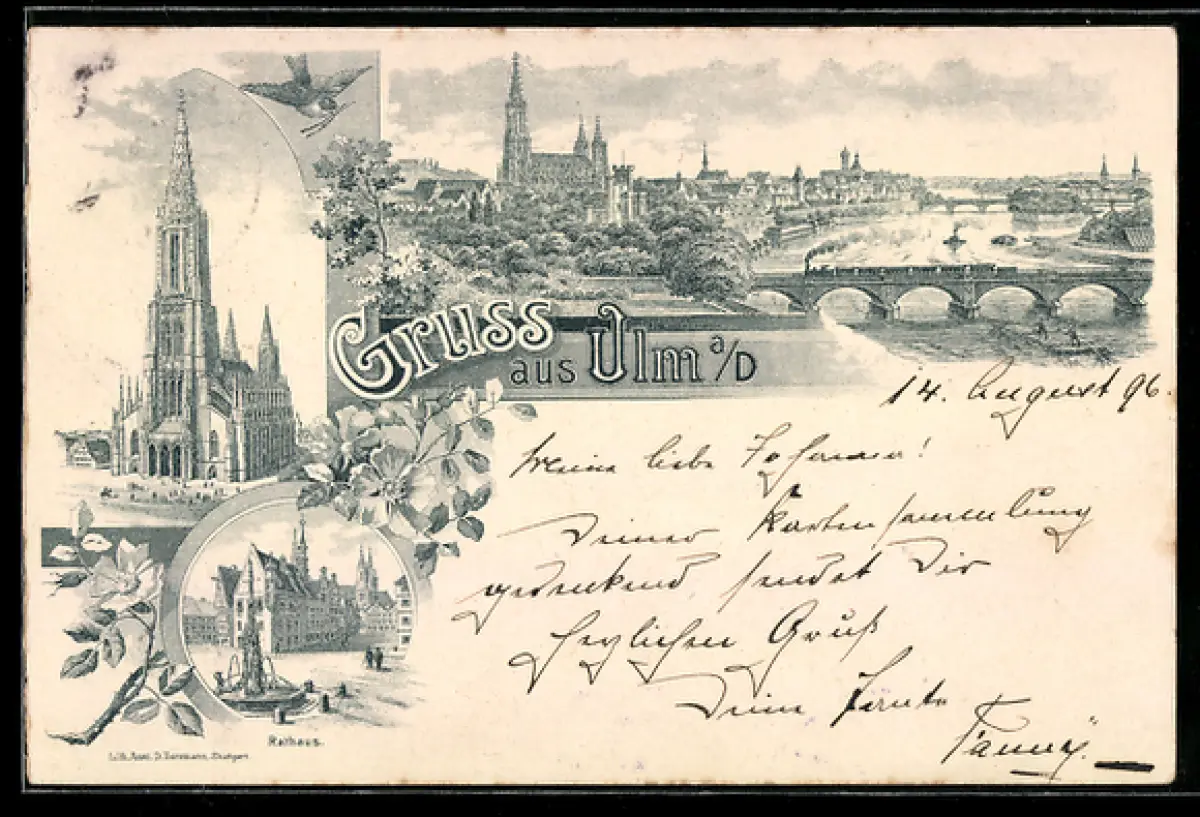 Gruss
aus Ulm a/D
14. August 96.
Meine liebe Johanna!
Deiner Kartensammlung
gedenkend, sendet Dir
herzlichen Gruß
Deine Tante
Fanny.
Rathaus.
Lith. Anst. Stuttgart